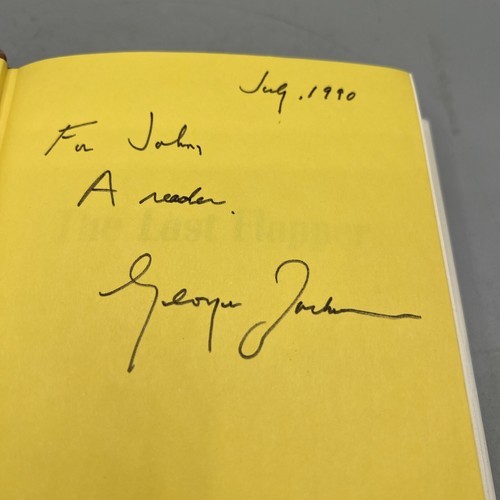 July, 1990
For John,
A reader.
The Last Flapper
George Zuckerman